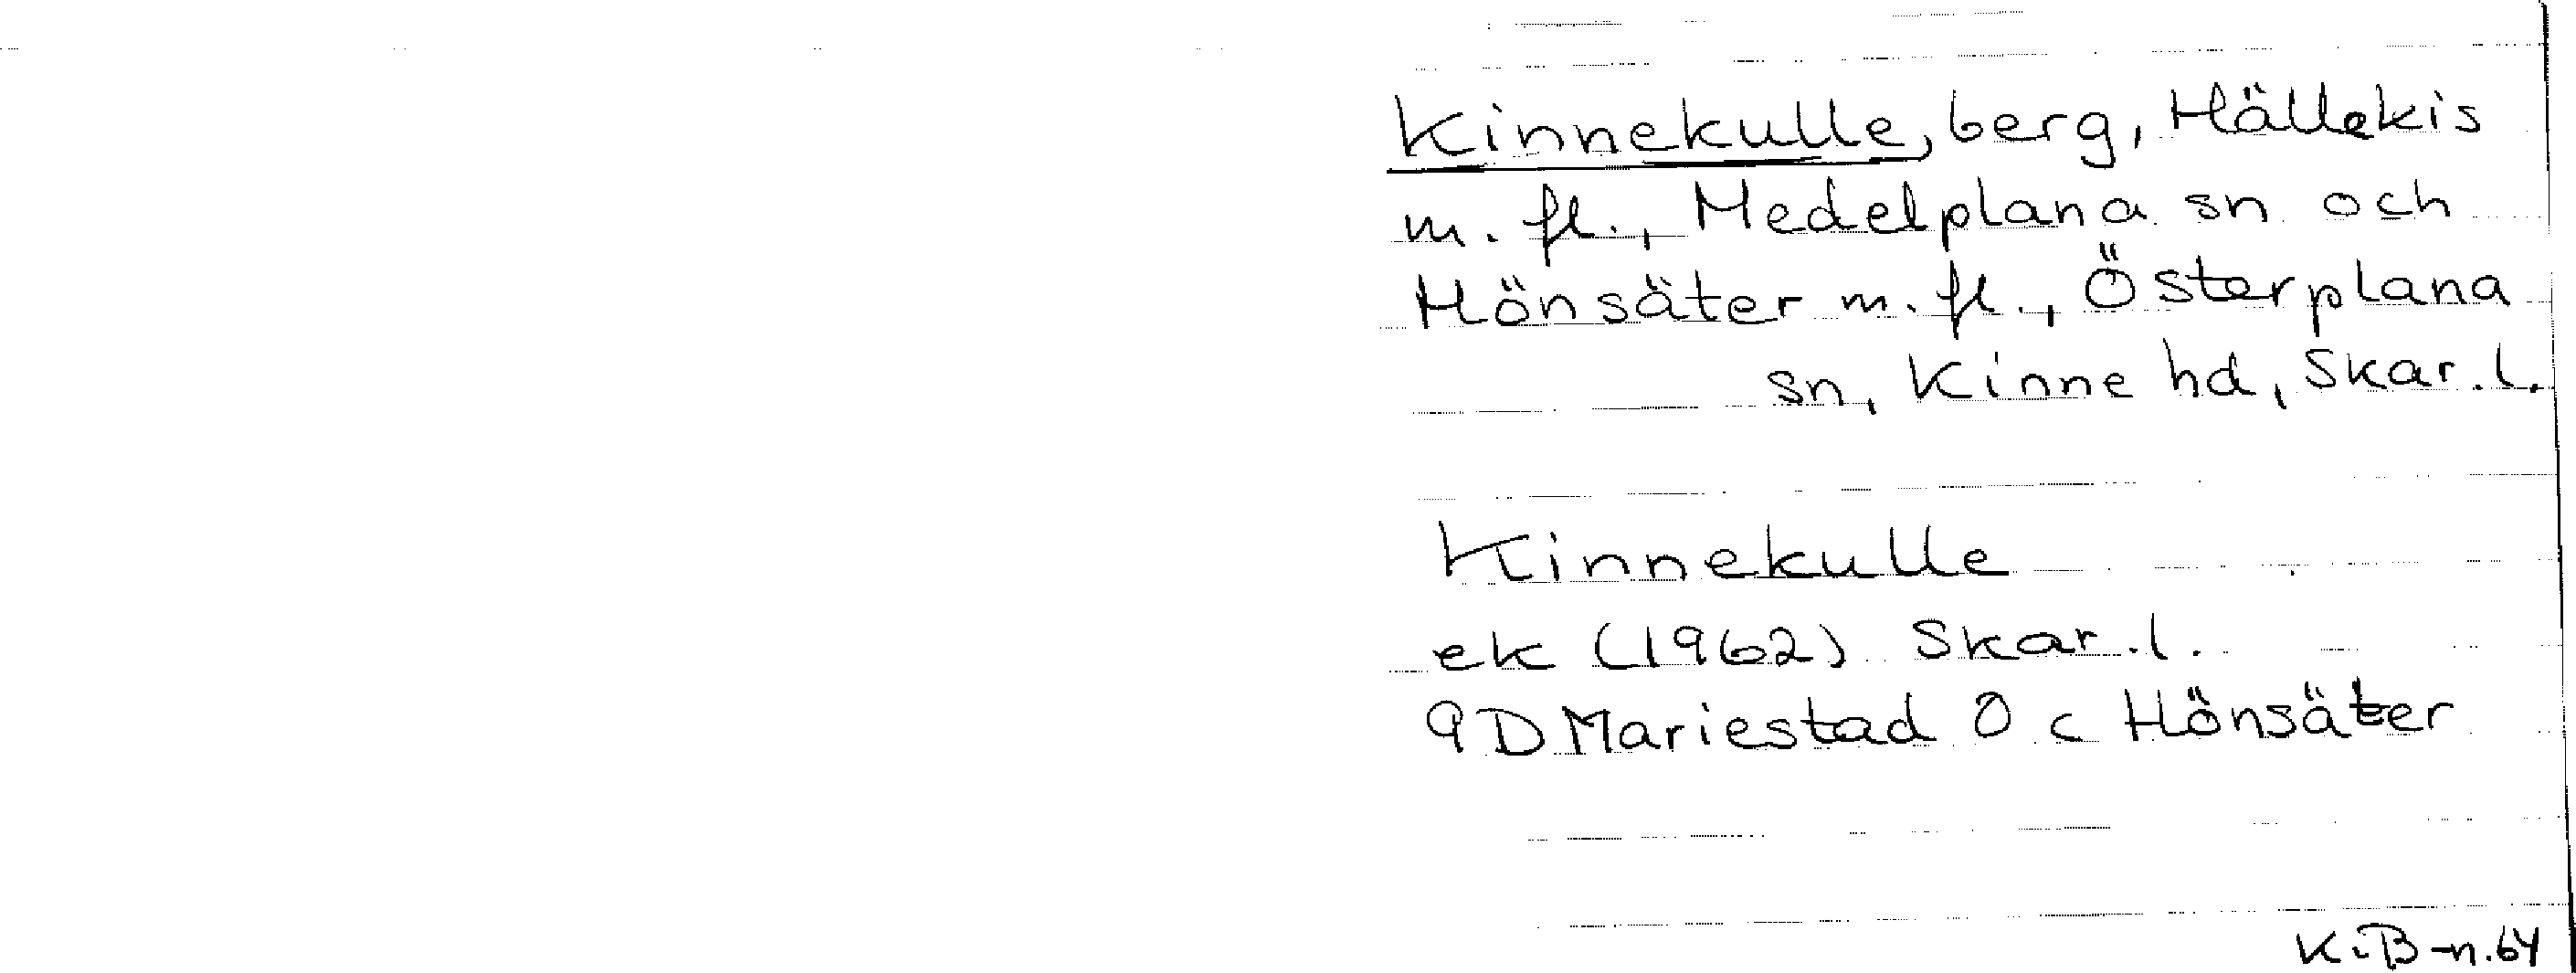 Kinnekulle, berg, Hällekis
m. fl., Medelplana sn och
Hönsäter m. fl., Österplana
sn, Kinne hd, Skar. l.
Kinnekulle
ek (1962) Skar. l.
9D Mariestad 0 c Hönsäter
K.B-n.64